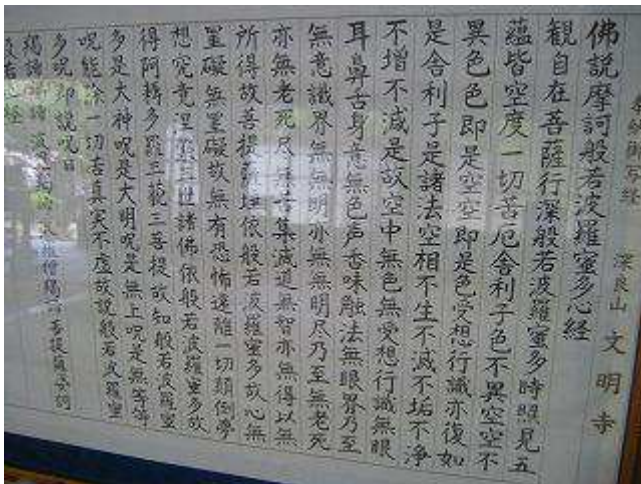 写経 深良山 文明寺
佛説摩訶般若波羅蜜多心経
観自在菩薩行深般若波羅蜜多時照見五
蘊皆空度一切苦厄舎利子色不異空空不
異色色即是空空即是色受想行識亦復如
是舎利子是諸法空相不生不滅不垢不浄
不増不減是故空中無色無受想行識無眼
耳鼻舌身意無色声香味触法無眼界乃至
無意識界無無明亦無無明尽乃至無老死
亦無老死尽無苦集滅道無智亦無得以無
所得故菩提薩埵依般若波羅蜜多故心無
罣礙無罣礙故無有恐怖遠離一切顛倒夢
想究竟涅槃三世諸佛依般若波羅蜜多故
得阿耨多羅三藐三菩提故知般若波羅蜜
多是大神呪是大明呪是無上呪是無等等
呪能除一切苦真実不虚故説般若波羅蜜
多呪即説呪曰
羯諦羯諦 波羅羯諦 波羅僧羯諦 菩提薩婆訶
般若心経